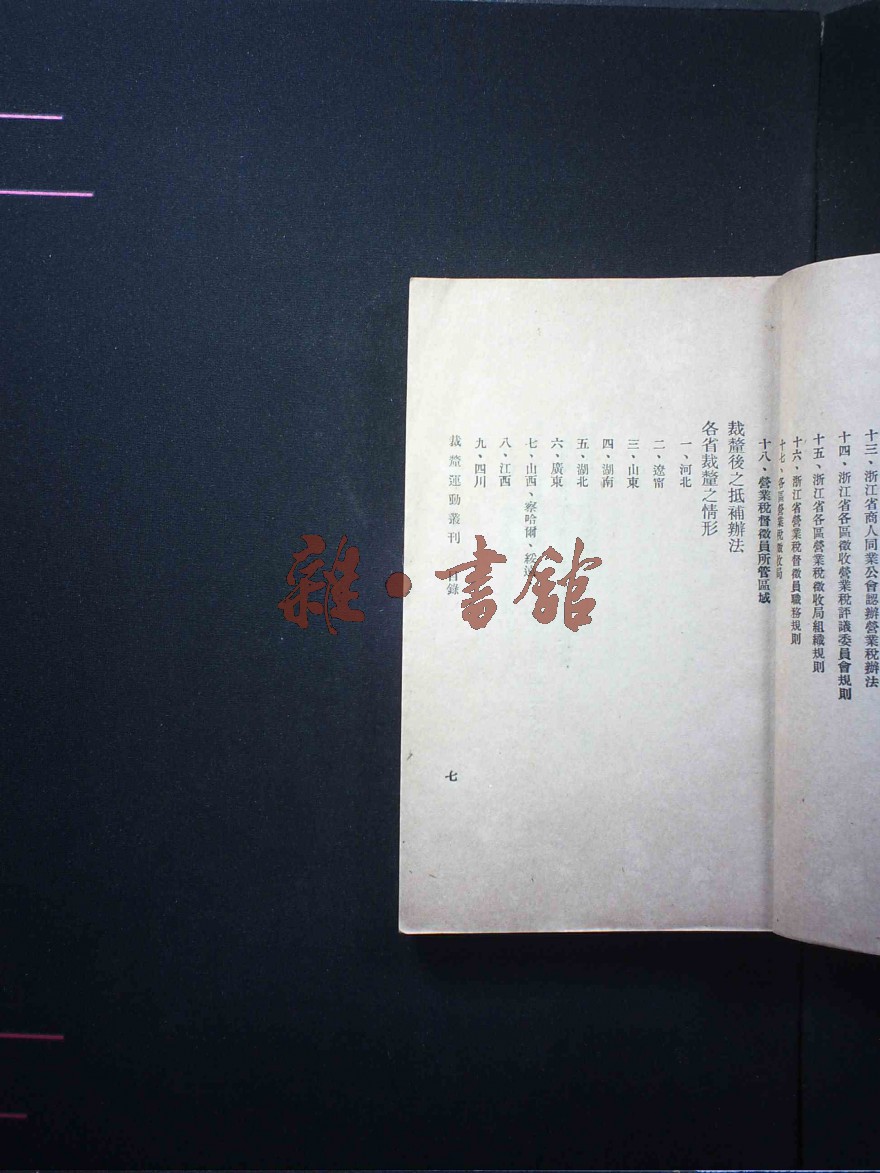 十三、浙江省商人同業公會認辦營業稅辦法
十四、浙江省各區徵收營業稅評議委員會規則
十五、浙江省各區營業稅徵收局組織規則
十六、浙江省營業稅督徵員職務規則
十七、各區營業稅徵收局
十八、營業稅督徵員所管區域
裁釐後之抵補辦法
各省裁釐之情形
一、河北
二、遼甯
三、山東
四、湖南
五、湖北
六、廣東
七、山西、察哈爾、綏遠
八、江西
九、四川
裁釐運動叢刊 目錄
七
雜·書館